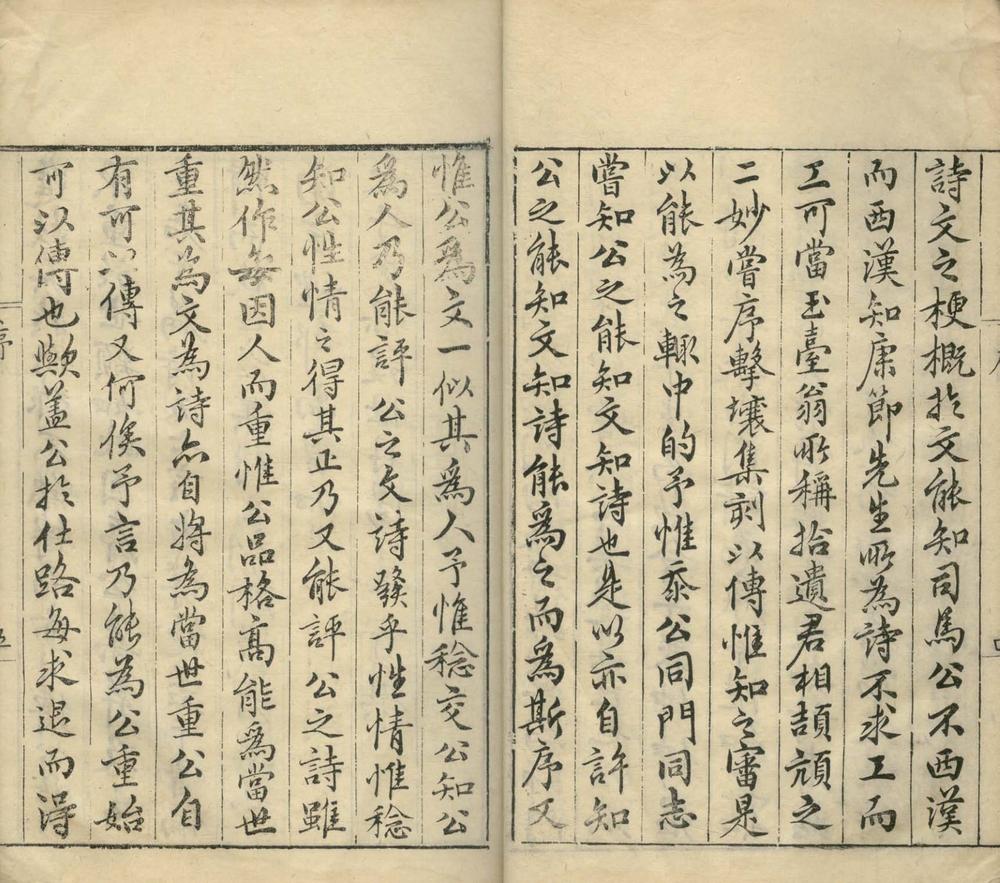 詩文之梗概於文能知司馬公不西漢
而西漢知康節先生所為詩不求工而
工可當玉臺翁所稱拾遺君相頡頏之
二妙嘗序擊壤集刻以傳惟知之審是
以能為之輙中的予惟忝公同門同志
嘗知公之能知文知詩也是以亦自許知
公之能知文知詩能為之而為斯序又
惟公為文一似其為人予惟稔交公知公
為人乃能評公之文詩發乎性情惟稔
知公性情之得其正乃又能評公之詩雖
然作每因人而重惟公品格高能為當世
重其為文為詩亦自將為當世重公自
有可以傳又何俟予言乃能為公重始
可以傳也歟蓋公於仕路每求退而得
序
五